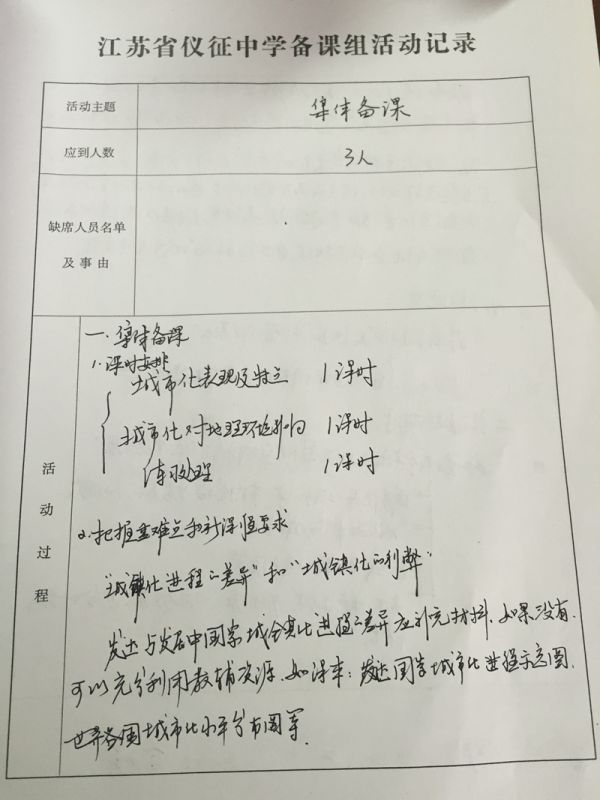 江苏省仪征中学备课组活动记录
活动主题 集体备课
应到人数 3人
缺席人员名单
及事由
活动过程
一.集体备课
1.课时安排
城市化表现及特点 1课时
城市化对地理环境影响 1课时
练习处理 1课时
2.把握重难点和新课程要求
"城镇化进程的差异"和"城镇化的利弊"
发达与发展中国家城镇化进程之差异应补充材料.如果没有.
可以充分利用教辅资源.如课本:发达国家城市化进程示意图.
世界各国城市化水平分布图等.